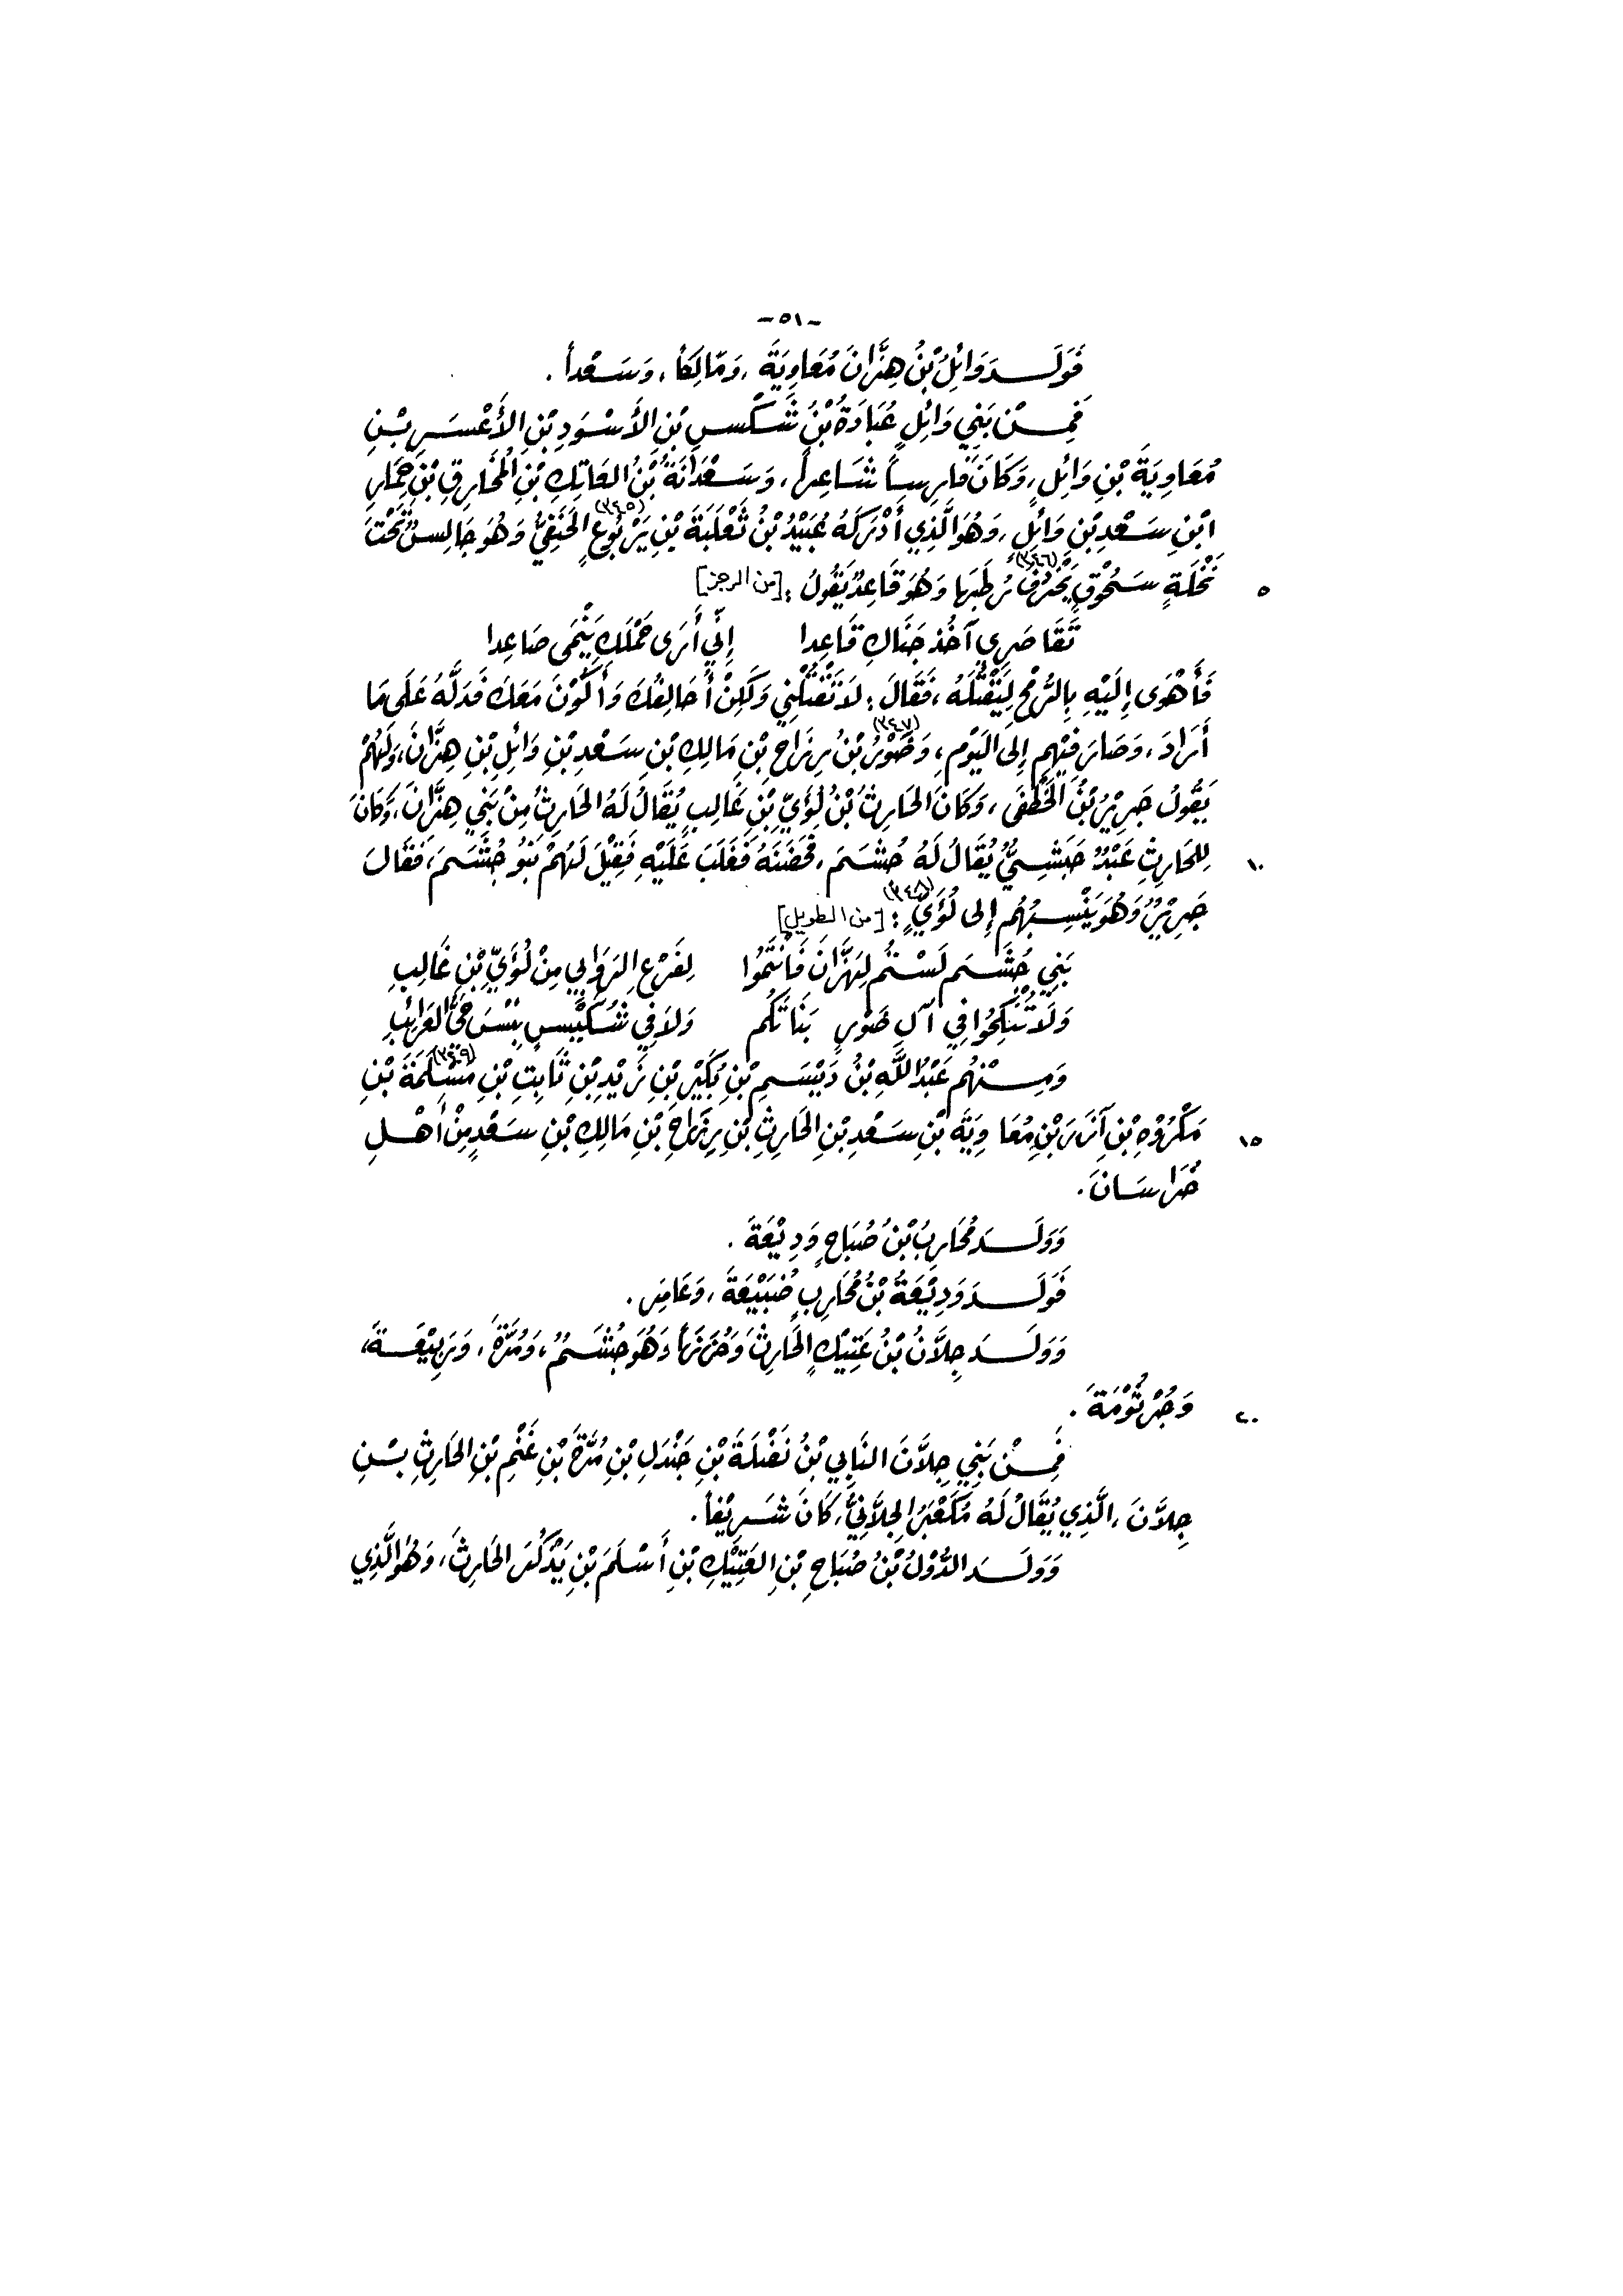 -٥١-
فَوَلَـدَ وَائِلُ بْنُ هِزَّانَ مُعَاوِيَةَ، وَمَالِكَاً، وَسَعْداً.
فَمِـنْ بَنِي وَائِلٍ عُبَادَةُ بْنُ شَكْسِ بْنِ الأَسْوَدِ بْنِ الأَعْسَرِ بْنِ
مُعَاوِيَةَ بْنِ وَائِلٍ، وَكَانَ فَارِساً شَاعِراً، وَسَعْدَانَةُ بْنُ العَاتِكِ بْنِ المُخَارِقِ بْنِ حِمَارِ
ابْنِ سَعْدِ بْنِ وَائِلٍ، وَهُوَ الَّذِي أَدْرَكَهُ عُبَيْدُ بْنُ ثَعْلَبَةَ بْنِ يَرْبُوعٍ (٣٤٥) الحَنَفِيُّ وَهُوَ جَالِسٌ تَحْتَ
٥ نَخْلَةٍ سَحُوْقٍ يَخْرُفُ (٣٤٦) رُطَبَهَا وَهُوَ قَاعِدٌ يَقُولُ: [من الرجز]
تَقَاصَرِي آخُذْ جَنَاكِ قَاعِدا إِنِّي أَرَى حَمْلَكِ يَنْمَى صَاعِدا
فَأَهْوَى إِلَيْهِ بِالرُّمْحِ لِيَقْتُلَهُ، فَقَالَ: لَا تَقْتُلْنِي وَلَكِنْ أُحَالِفُكَ وَأَكُوْنَ مَعَكَ فَدَلَّهُ عَلَى مَا
أَرَادَ، وَصَارَ فِيْهِم إِلَى اليَوْمِ، وَضَوْرُ (٣٤٧) بْنُ رِزَاحِ بْنِ مَالِكِ بْنِ سَعْدِ بْنِ وَائِلِ بْنِ هِزَّانَ، وَلَهُمْ
يَقُولُ جَرِيْرُ بْنُ الخَطَفَى، وَكَانَ الحَارِثُ بْنُ لُؤَيِّ بْنِ غَالِبٍ يُقَالُ لَهُ الحَارِثُ مِنْ بَنِي هِزَّانَ، وَكَانَ
١٠ لِلحَارِثِ عَبْدٌ حَبَشِيٌّ يُقَالُ لَهُ جُشَمَ، فَحَضَنَهُ فَغَلَبَ عَلَيْهِ فَقِيْلَ لَهُمْ بَنُو جُشَمَ، فَقَالَ
جَرِيْرٌ وَهُوَ يَنْسِبُهُم إِلى لُؤَيٍّ (٣٤٨): [من الطويل]
بَنِي جُشَمٍ لَسْتُم لِهِزَّانَ فَانْتَمُوا لِفَرْعِ الرَوَابِي مِنْ لُؤَيِّ بْنِ غَالِبِ
وَلَا تُنْكِحُوا فِي آلِ ضَوْرٍ بَنَاتَكُم وَلَا فِي شُكَيْسٍ بِئْسَ حَيُّ الغَرَائِبِ
وَمِـنْهُم عَبْدُ اللَّهِ بْنُ دَيْسَمِ بْنِ بُكَيْرِ بْنِ زَيْدِ بْنِ ثَابِتِ بْنِ مَسْلَمَةَ (٣٤٩) بْنِ
١٥ مَكْرُوْهِ بْنِ آزَرَ بْنِ مُعَاوِيَةَ بْنِ سَعْدِ بْنِ الحَارِثِ بْنِ رِزَاحِ بْنِ مَالِكِ بْنِ سَعْدٍ مِنْ أَهْـلِ
خُرَاسَانَ.
وَوَلَـدَ مُحَارِبُ بْنُ صُبَاحٍ وَدِيْعَةَ.
فَوَلَـدَ وَدِيْعَةُ بْنُ مُحَارِبٍ ضُبَيْعَةَ، وَعَامِرَ.
وَوَلَـدَ جِلَّانُ بْنُ عَتِيْكٍ الحَارِثَ وَهُوَ جُشَمُ، وَمُرَّةَ، وَرَبِيْعَـةَ،
٢٠ وَجُرْثُوْمَةَ.
فَمِـنْ بَنِي جِلَّانَ النَابِي بْنُ نَضْلَةَ بْنِ جَنْدَلِ بْنِ مُرَّةَ بْنِ غَنْمِ بْنِ الحَارِثِ بْنِ
جِلَّانَ، الَّذِي يُقَالُ لَهُ مُكَعْبَرُ الجِلَّانِيُّ، كَانَ شَرِيْفاً.
وَوَلَـدَ الدُّوْلُ بْنُ صُبَاحِ بْنِ العَتِيْكِ بْنِ أَسْلَمَ بْنِ يَذْكُرَ الحَارِثَ، وَهُوَ الَّذِي